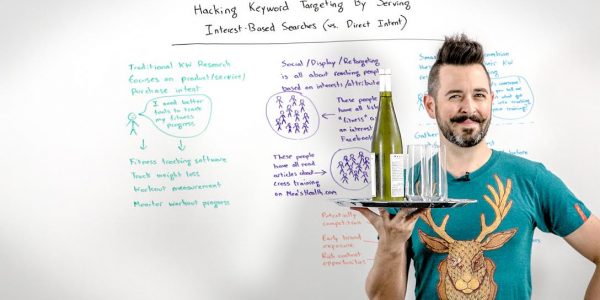 Hacking Keyword Targeting By Serving
Interest-Based Searches (vs. Direct Intent)
Traditional KW Research
Focuses on product/service/
Purchase intent
I need better
tools to track
my fitness
progress
Fitness tracking software
Track weight loss
Workout measurement
Monitor workout progress
Social/Display/Retargeting
is all about reaching people
based on interests/attribute
These people
have all
"fitness" as
an interest
Facebook
These people
have all read
articles about
cross training
on Men'sHealth.com
Sma
KW
Gather
Potentially
competition
Early brand
exposure
Rich content
opportunities